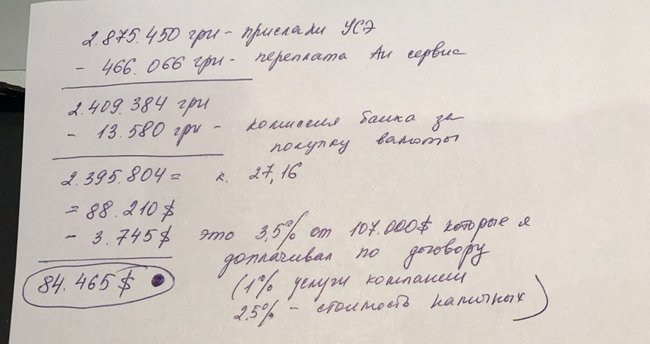 2.875.450 грн - прислали УСЭ
- 466.066 грн - переплата Аи сервис
2.409.384 грн
- 13.580 грн - комиссия банка за
покупку валюты
2.395.804 = к. 27,16
= 88.210 $
- 3.745 $ это 3,5% от 107.000$ которые я
доплачивал по договору
84.465 $
(1% услуги компании
2,5% - стоимость наличных)